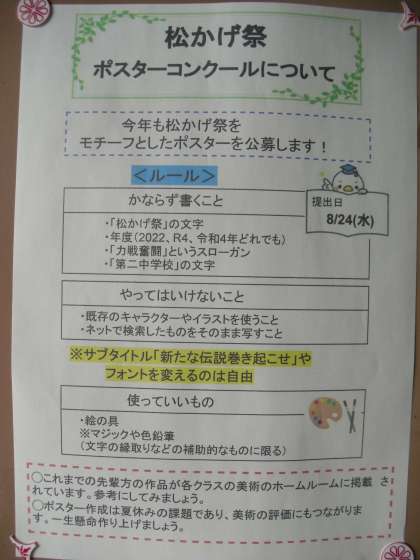 松かげ祭
ポスターコンクールについて
今年も松かげ祭を
モチーフとしたポスターを公募します!
＜ルール＞
提出日
8/24(水)
かならず書くこと
・「松かげ祭」の文字
・年度(2022、R4、令和4年どれでも)
・「力戦奮闘」というスローガン
・「第二中学校」の文字
やってはいけないこと
・既存のキャラクターやイラストを使うこと
・ネットで検索したものをそのまま写すこと
※サブタイトル「新たな伝説巻き起こせ」や
フォントを変えるのは自由
使っていいもの
・絵の具
※マジックや色鉛筆
(文字の縁取りなどの補助的なものに限る)
○これまでの先輩方の作品が各クラスの美術のホームルームに掲載 さ
れています。参考にしてみましょう。
○ポスター作成は夏休みの課題であり、美術の評価にもつながりま
す。一生懸命作り上げましょう。